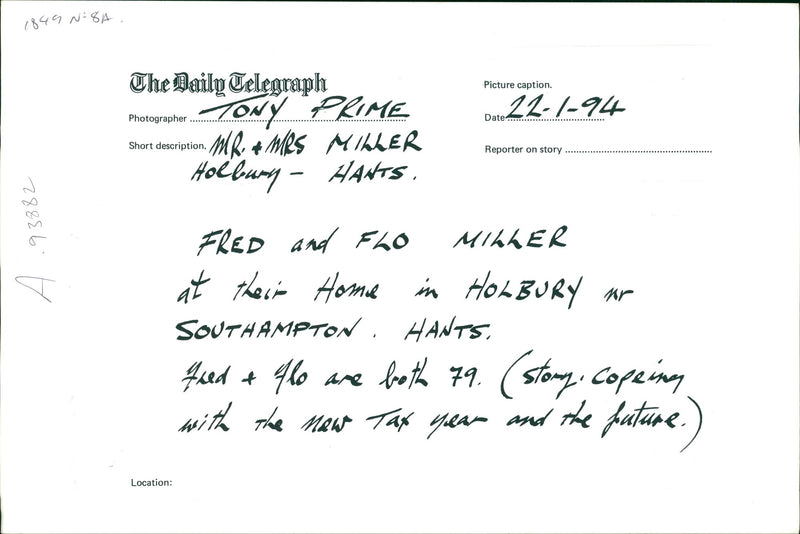 1849 Nº 8A.
The Daily Telegraph
Picture caption.
Photographer TONY PRIME
Date 22-1-94
Short description. MR. + MRS MILLER
Holbury - HANTS.
Reporter on story
A .93882
FRED and FLO MILLER
at their Home in HOLBURY nr
SOUTHAMPTON. HANTS.
Fred + Flo are both 79. (story. Copeing
with the new Tax year and the future.)
Location: